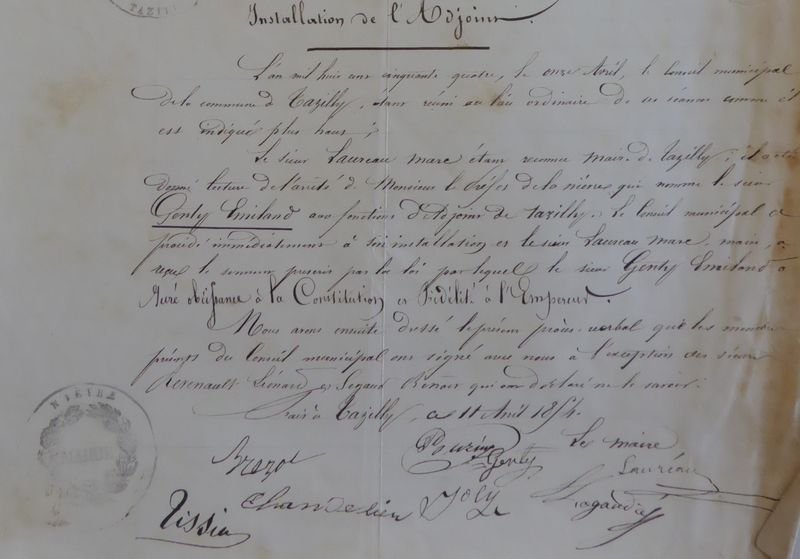 TAZIL
Installation de l'Adjoint.
L'an mil huit cent cinquante quatre, le onze Avril, le Conseil municipal
de la commune de Tazilly, étant réuni au lieu ordinaire de ses séances comme il
est indiqué plus haut;
Le sieur Laureau marc étant reconnu maire de Tazilly; il a été
donné lecture de l'arrêté de Monsieur le Préfet de la nièvre qui nomme le sieur
Genty Emiland aux fonctions d'adjoint de tazilly. Le Conseil municipal a
procédé immédiatement à son installation et le sieur Laureau marc, maire, a
reçu le serment prescrit par la loi par lequel le sieur Genty Emiland a
Juré obéissance à la Constitution et Fidélité à l'Empereur.
Nous avons ensuite dressé le présent procès-verbal que les membres
présents du Conseil municipal ont signé avec nous à l'exception des sieurs
Léonard et Segaud Benoit qui ont déclaré ne le savoir.
Fait à Tazilly, ce 11 Avril 1854.
Le maire
Genty
Laureau
Chandelier
Joly
Tissier
MAIRIE